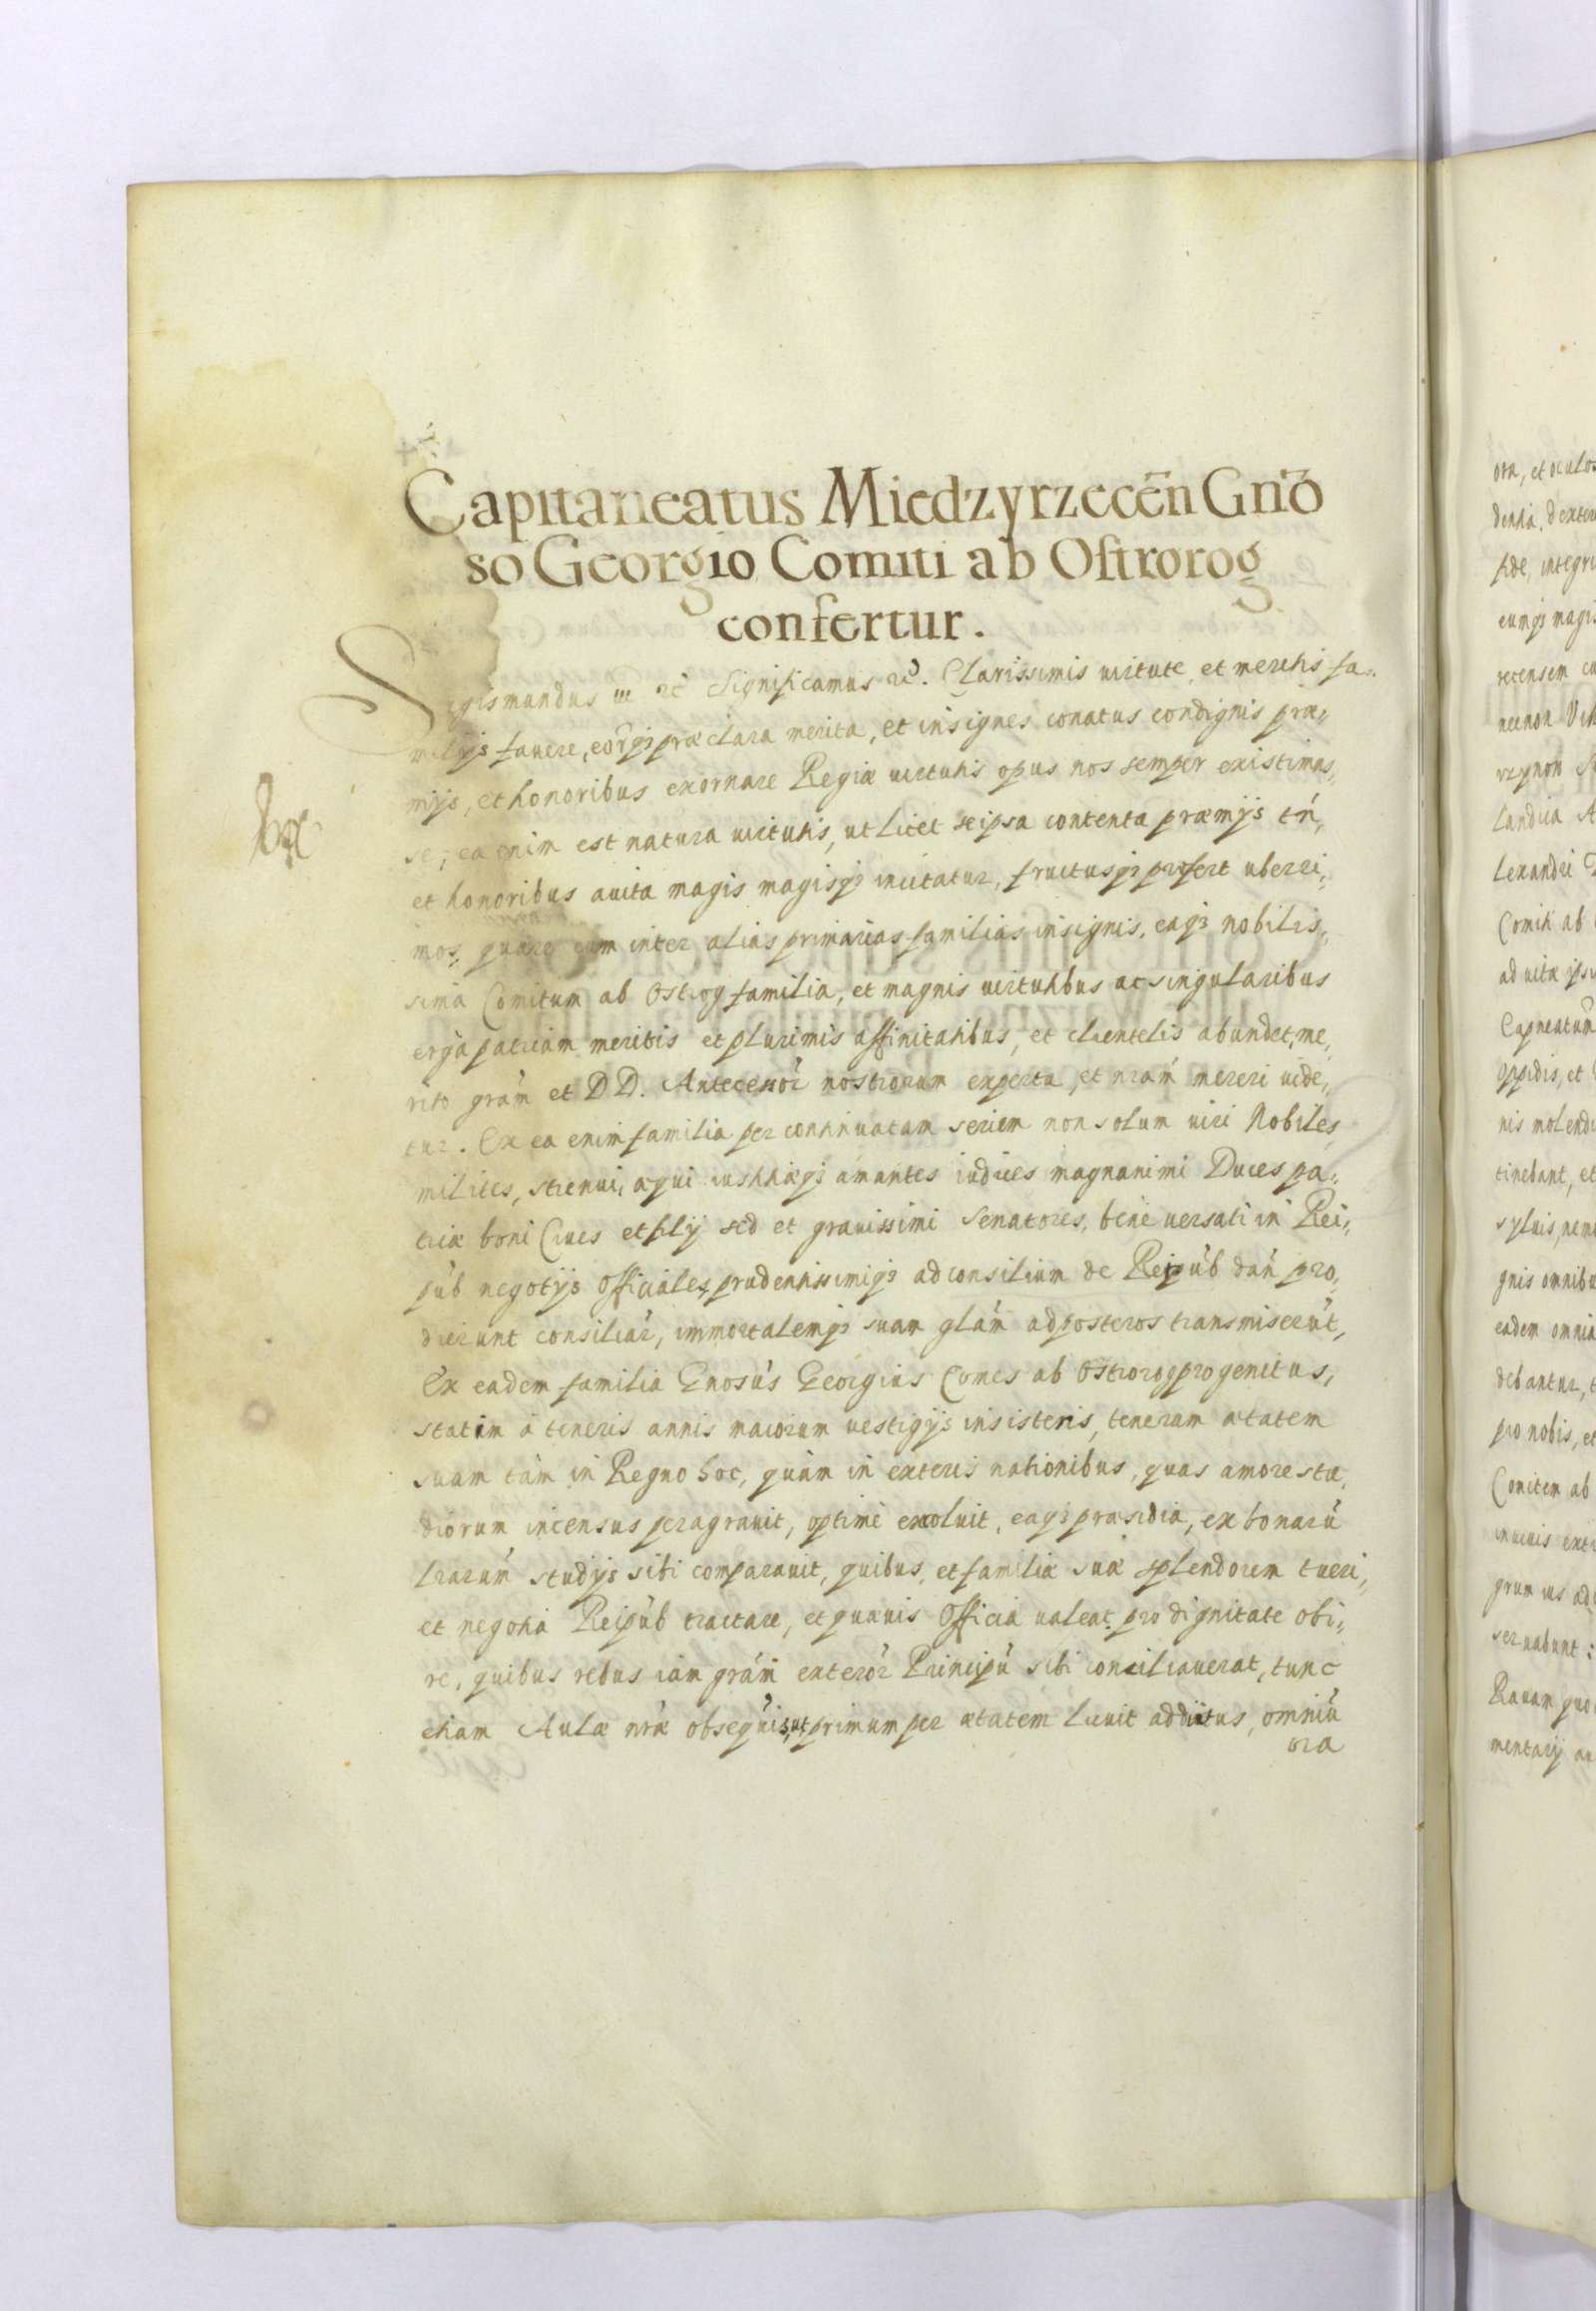 Capitaneatus Miedzyrzecen̄ Gn̄o
so Georgio Comiti ab Ostrorog
confertur.
Sigismundus III etc̃ Significamus etc̃. Clarissimis uirtute, et meritis fa„
milijs fauere, eorq̃ præclara merita, et insignes conatus condignis præ„
mijs, et honoribus exornare Regiæ uirtutis opus nos semper existimas„
se, ea enim est natura uirtutis, ut licet seipsa contenta præmijs tń,
et honoribus auita magis magisq̃ incitatur, fructusq̃ profert uberri„
mos, quare cum inter alias primarias familias insignis, eaq̃ nobilis„
sima Comitum ab Ostrog familia, et magnis uirtutibus ac singularibus
erga patriam meritis et plurimis affinitatibus, et clientelis abundet, me„
rito grám et D D. Antecessór nostrorum experta, et nrám mereri uide„
tur. Ex ea enim familia per continuatam seriem non solum uiri Nobiles
milites, strenui, æqui iustitiæq̃ amantes iudices magnanimi Duces pa„
triæ boni Ciues et filij sed et grauissimi Senatores, bene uersati in Rei„
púb negotijs Officiales prudentissimiq̃ ad consilium de Reipúb dań pro„
dierunt consiliár, immortalemq̃ suam glám ad posteros transmiserút,
Ex eadem familia Gnosús Georgius Comes ab Ostrorog progenitus,
statim à teneris annis maiorum uestigijs insistens, teneram ætatem
suam tàm in Regno hoc, quàm in exteris nationibus, quas amore stu„
diorum incensus peragrauit, optimè excoluit, eaq̃ præsidia, ex bonarú
lrarúm studijs sibi comparauit, quibus, et familiæ suæ splendorem tueri,
et negotia Reipúb tractare, et quæuis Officia ualeat pro dignitate obi„
re, quibus rebus iam grám exterór Principú sibi conciliauerat, tunc
etiam Aulæ nræ obsequijs, ut primum per ætatem licuit addictus, omniú
ora